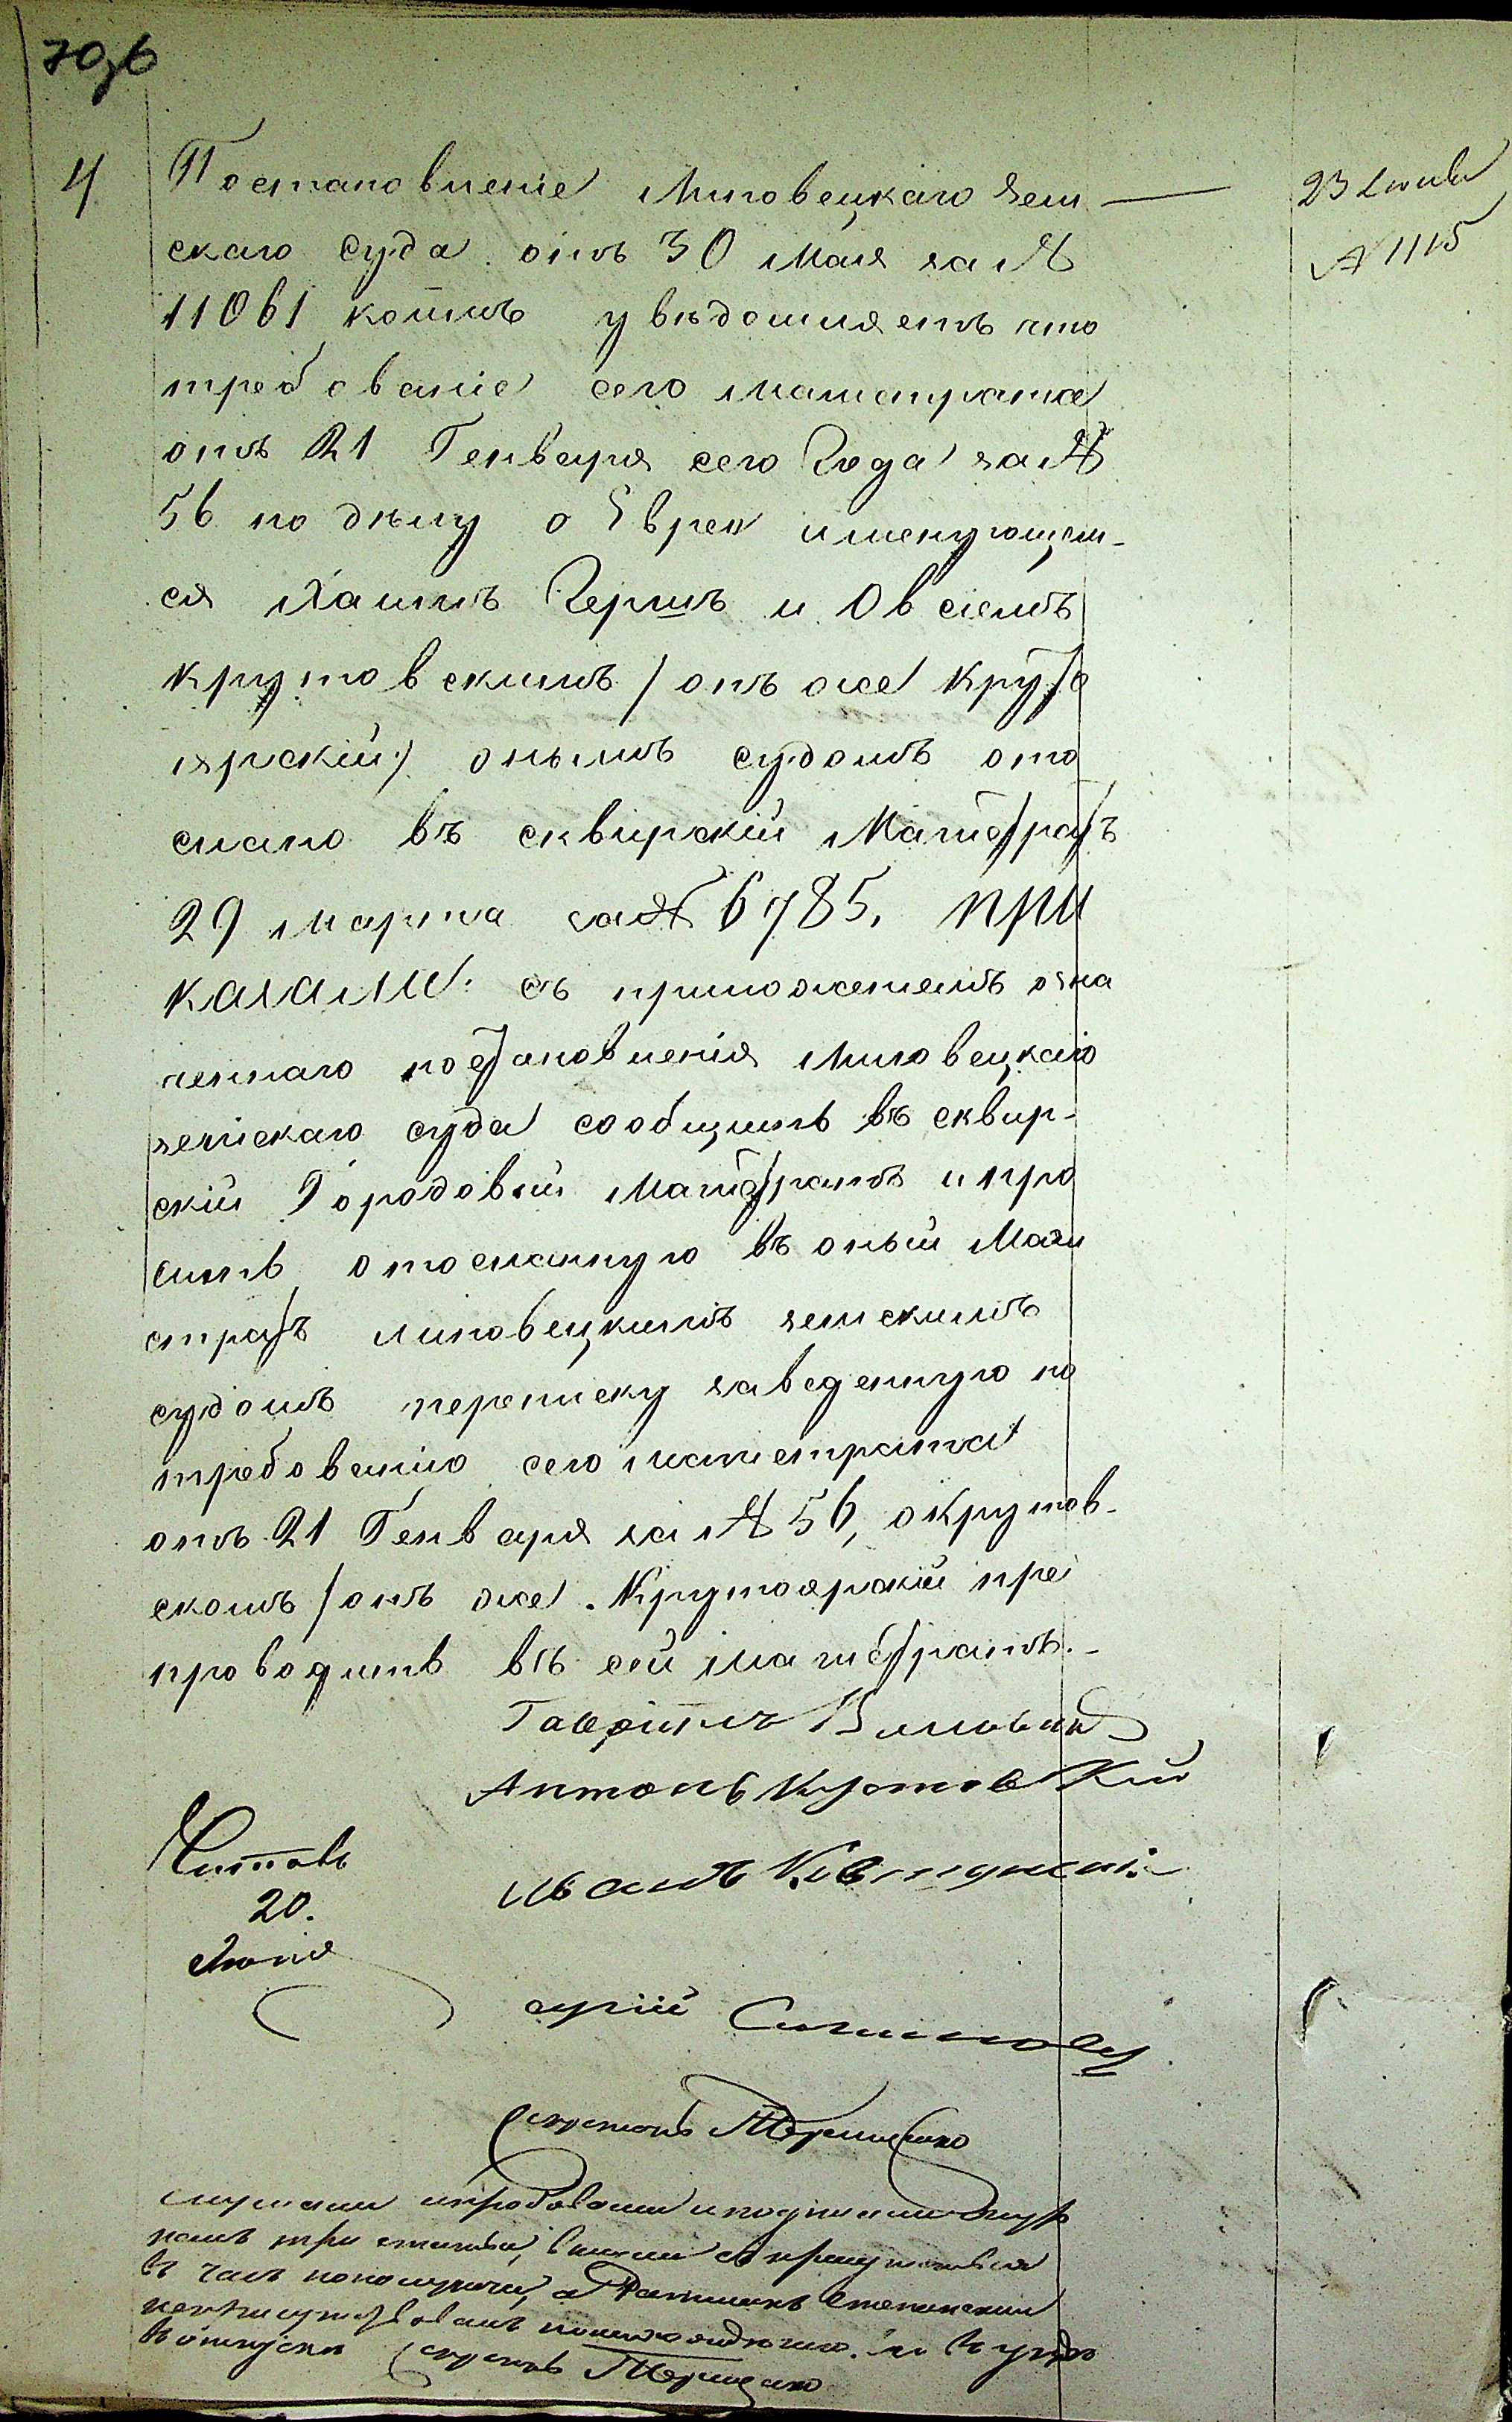 70об
4 Постановление Липовецкаго зем — 23 Июня
скаго суда отъ 30 Мая за № № 1115
11061 коимъ увѣдомляетъ что
требование сего магистрата
отъ 21 Генваря сего Года за №
56 по дѣлу о Евреи именующем-
ся Хаимъ Гершъ и Овсiемъ
крутовскимъ / онъ же Круто
ярскій / онымъ судомъ ото
слано въ сквирскій Магистратъ
29 марта за № 6785, при
казали: съ приложениемъ озна
ченнаго постановленія Липовецкаго
земскаго суда сообщить въ сквир-
скій Городовый Магистратъ и про
сить отосланную въ оный Маги
стратъ липовецкимъ земскимъ
судомъ переписку заведенную по
требованію сего магистрата
отъ 21 Генваря за № 56, о Крутов-
скомъ / онъ же Крутоярскій пре
проводить въ сей магистратъ.-
Гавріилъ
Антонъ
Читалъ
20. Иванъ
Июня
Секретарь
слушали
нами три статьи,
въ часъ пополудни, а Ратманъ
Секретарь